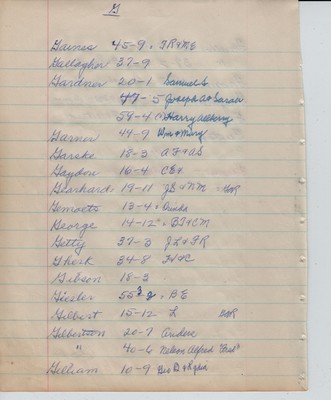 G
Gaines 45-9 . TR & ME
Gallagher 37-9
Gardner 20-1 Samuel S
47-5 Joseph A & Sarah
54-4 Harry
Garner 44-9 Wm & Mary
Garske 18-3 AF & AS
Gaydon 16-4 CE
Gearhard 19-11 JE & NM
13-4
George 14-12 BT & CM
Getty 37-3 JL & FR
Ghork 34-8
Gibson 18-3
Giesler 55 BE
Gilbert 15-12 L
Gilbertson 20-7 Anders
" 40-6 Nelson Alfred "Bud"
Gilliam 10-9 Geo D &